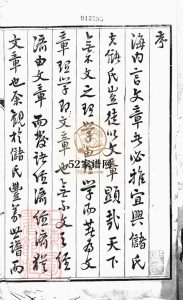 序
海内言文章者必推宜興儲氏
夫儲氏豈徒以文章顯哉天下
無不文之理學由理學而著為文
章理學即文章也無不文之經
濟由文章而發諸經濟經濟猶
文章也余觀於儲氏豐義世譜而
52家谱网